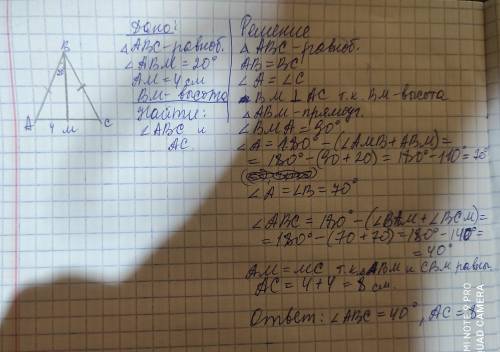 B
20
A 4 M C
Дано:
△ABC-равноб.
∠ABM=20°
AM=4см
BM-высота
Найти:
∠ABC и
AC.
Решение
△ABC-равноб.
AB=BC
∠A=∠C
BM⊥AC т.к BM-высота
△ABM-прямоуг.
∠BMA=90°
∠A=180°-(∠AMB+ABM)=
=180°-(90+20)=180°-110°=70°
∠A=∠B=70°
∠ABC=180°-(∠BAM+∠BCM)=
=180°-(70+70)=180°-140°=
=40°
AM=MC т.к ABM и CBM равны
AC=4+4=8см.
Ответ: ∠ABC=40°, AC=8
MI NOTE 9 PRO
QUAD CAMERA